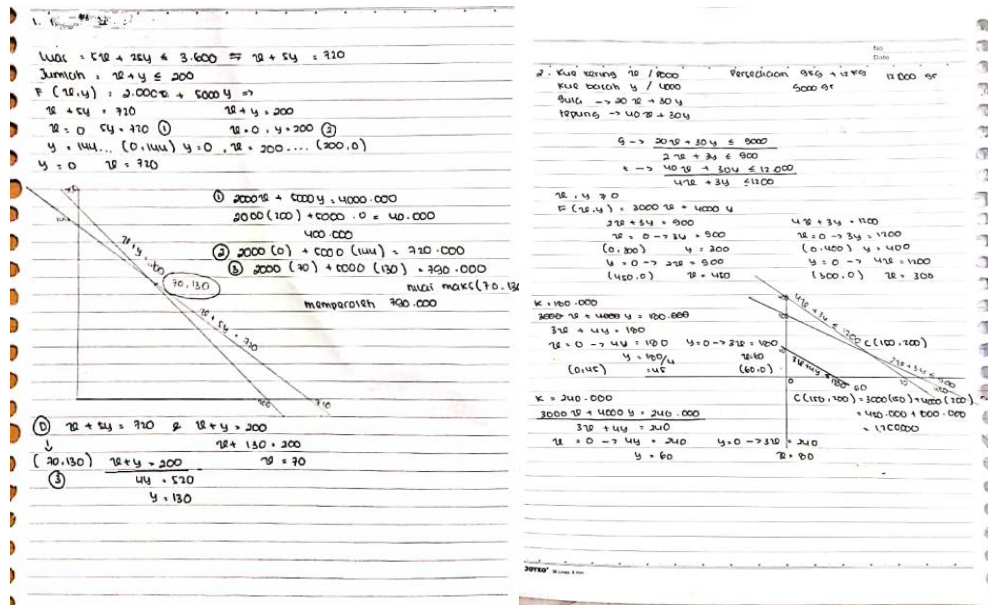 1.
Luas : 5x + 25y ≤ 3.600 ⇆ x + 5y = 720
Jumlah : x + y ≤ 200
F (x,y) : 2.000x + 5000 y =>
x + 5y = 720 x + y = 200
x = 0 5y = 720 ① x = 0 , y = 200 ②
y = 144... (0,144) y = 0 , x = 200 .... (200,0)
y = 0 x = 720
① 2000x + 5000y = 4000.000
2000 (200) + 5000 . 0 = 40.000
400.000
② 2000 (0) + 5000 (144) = 720.000
③ 2000 (70) + 5000 (130) = 790.000
nilai maks (70.130
memperoleh 790.000
x + y = 200
70,130
x + 5y = 720
200 720
① x + 5y = 720 & x + y = 200
↓ x + 130 = 200
(70.130) x + y = 200 x = 70
③ 4y = 520
y = 130
No
Date
2. Kue kering x / 3000 Persediaan 9kg + 12 kg 12 000 gr
Kue basah y / 4000 9000 gr
Gula -> 20 x + 30 y
tepung -> 40 x + 30y
G -> 20x + 30y ≤ 9000
2x + 3y ≤ 900
t -> 40x + 30y ≤ 12.000
4x + 3y ≤ 1200
x , y ≥ 0
F (x,y) = 3000 x + 4000 y
2x + 3y = 900 4x + 3y = 1200
x = 0 -> 3y = 900 x = 0 -> 3y = 1200
(0,300) y = 300 (0,400) y = 400
y = 0 -> 2x = 900 y = 0 -> 4x = 1200
(450,0) x = 450 (300,0) x = 300
K = 180.000
3000 x + 4000 y = 180.000
3x + 4y = 180
x = 0 -> 4y = 180 y = 0 -> 3x = 180
y = 180/4 x = 60
(0,45) = 45 (60,0)
4x + 3y ≤ 1200
C (150,200)
2x + 3y ≤ 900
3x + 4y ≤ 180
0 60
C (150,200) = 3000 (150) + 4000 (200)
= 450.000 + 800.000
= 1.250000
K = 240.000
3000 x + 4000 y = 240.000
3x + 4y = 240
x = 0 -> 4y = 240 y = 0 -> 3x = 240
y = 60 x = 80
JOYKO